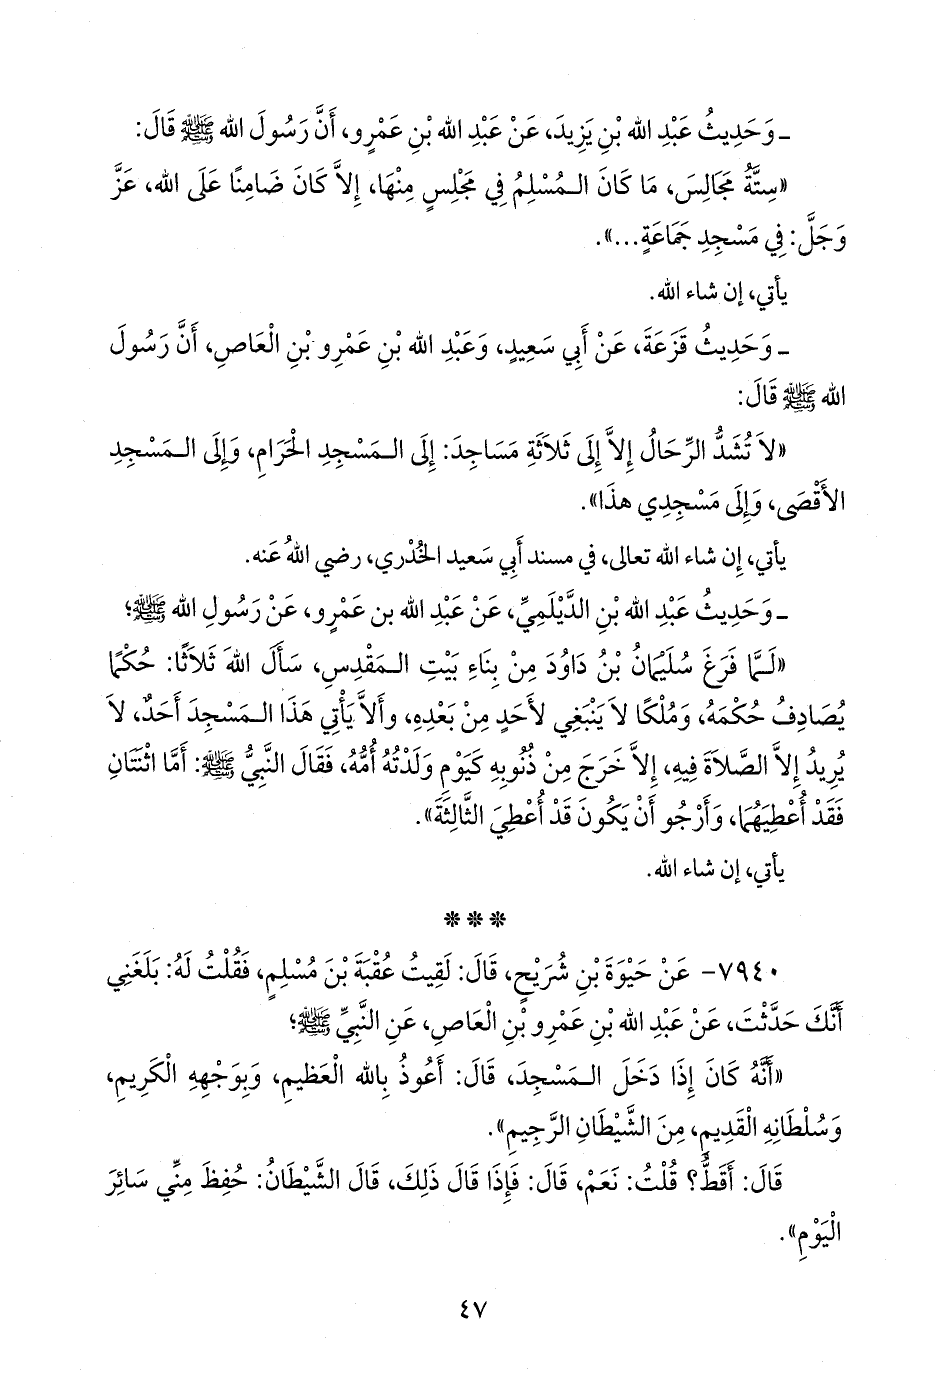 ـ وَحَدِيثُ عَبْدِ الله بْنِ يَزِيدَ، عَنْ عَبْدِ الله بْنِ عَمْرٍو، أَنَّ رَسُولَ الله ﷺ قَالَ:
«سِتَّةُ مَجَالِسَ، مَا كَانَ الْـمُسْلِمُ فِي مَجْلِسٍ مِنْهَا، إِلاَّ كَانَ ضَامِنًا عَلَى الله، عَزَّ
وَجَلَّ: فِي مَسْجِدِ جَمَاعَةٍ...».
يأتي، إن شاء الله.
ـ وَحَدِيثُ قَزَعَةَ، عَنْ أَبِي سَعِيدٍ، وَعَبْدِ الله بْنِ عَمْرِو بْنِ الْعَاصِ، أَنَّ رَسُولَ
الله ﷺ قَالَ:
«لاَ تُشَدُّ الرِّحَالُ إِلاَّ إِلَى ثَلاَثَةِ مَسَاجِدَ: إِلَى الْـمَسْجِدِ الْحَرَامِ، وَإِلَى الْـمَسْجِدِ
الأَقْصَى، وَإِلَى مَسْجِدِي هذَا».
يأتي، إِن شاء الله تعالى، في مسند أَبي سَعيد الخُدْري، رضي اللهُ عَنه.
ـ وَحَدِيثُ عَبْدِ الله بْنِ الدَّيْلَمِيِّ، عَنْ عَبْدِ الله بن عَمْرٍو، عَنْ رَسُولِ الله ﷺ؛
«لَـمَّا فَرَغَ سُلَيْمَانُ بْنُ دَاوُدَ مِنْ بِنَاءِ بَيْتِ الْـمَقْدِسِ، سَأَلَ اللهَ ثَلاَثًا: حُكْمًا
يُصَادِفُ حُكْمَهُ، وَمُلْكًا لاَ يَنْبَغِي لأَحَدٍ مِنْ بَعْدِهِ، وَأَلاَّ يَأْتِي هَذَا الْـمَسْجِدَ أَحَدٌ، لاَ
يُرِيدُ إِلاَّ الصَّلاَةَ فِيهِ، إِلاَّ خَرَجَ مِنْ ذُنُوبِهِ كَيَوْمِ وَلَدَتْهُ أُمُّهُ، فَقَالَ النَّبِيُّ ﷺ: أَمَّا اثْنَتَانِ
فَقَدْ أُعْطِيَهُمَا، وَأَرْجُو أَنْ يَكُونَ قَدْ أُعْطِيَ الثَّالِثَةَ».
يأتي، إن شاء الله.
***
٧٩٤٠- عَنْ حَيْوَةَ بْنِ شُرَيْحٍ، قَالَ: لَقِيتُ عُقْبَةَ بْنَ مُسْلِمٍ، فَقُلْتُ لَهُ: بَلَغَنِي
أَنَّكَ حَدَّثْتَ، عَنْ عَبْدِ الله بْنِ عَمْرِو بْنِ الْعَاصِ، عَنِ النَّبِيِّ ﷺ؛
«أَنَّهُ كَانَ إِذَا دَخَلَ الْـمَسْجِدَ، قَالَ: أَعُوذُ بِالله الْعَظِيمِ، وَبِوَجْهِهِ الْكَرِيمِ،
وَسُلْطَانِهِ الْقَدِيمِ، مِنَ الشَّيْطَانِ الرَّجِيمِ».
قَالَ: أَقَطُّ؟ قُلْتُ: نَعَمْ، قَالَ: فَإِذَا قَالَ ذَلِكَ، قَالَ الشَّيْطَانُ: حُفِظَ مِنِّي سَائِرَ
الْيَوْمِ».
٤٧